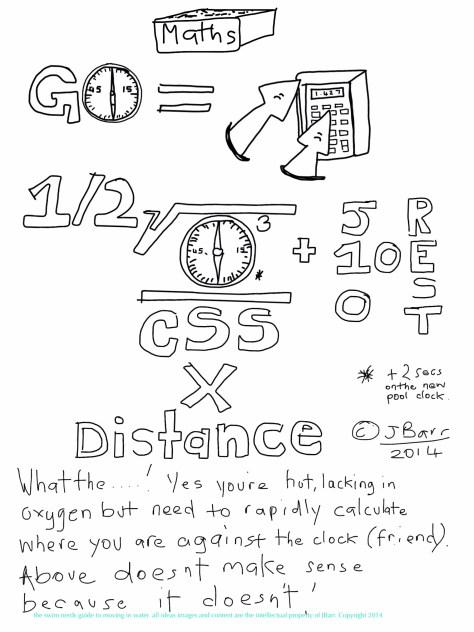 Maths
GO =
45 15
1.427
1/2 √ 3
45 15
*
+ 5 10 0
REST
CSS
X
Distance
* +2 secs
on the new
pool clock.
© JBarr
2014
What the ....! Yes you're hot, lacking in
oxygen but need to rapidly calculate
where you are against the clock (friend).
Above doesn't make sense
because it doesn't!
the swim nerds guide to moving in water. all ideas images and content are the intellectual property of JBarr. Copyright 2014